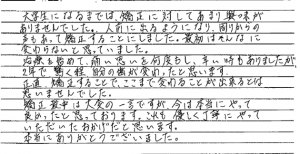 大学生になるまでは、矯正に対してあまり興味が
ありませんでした。人前に出るようになり、周りからの
もあって矯正することにしました。最初はそんなに
変わらないと思っていました。
治療を始めて、痛い思いを何度もし、辛い時もありましたが、
2年で驚く程、自分の歯が変わったと思います。
正直、矯正することで、ここまで変わることが出来るとは
思いませんでした。
矯正最中は大変の一言ですが、今は本当にやって
良かったと思っております。これも優しく丁寧にやって
いただいたおかげだと思います。
本当にありがとうございました。